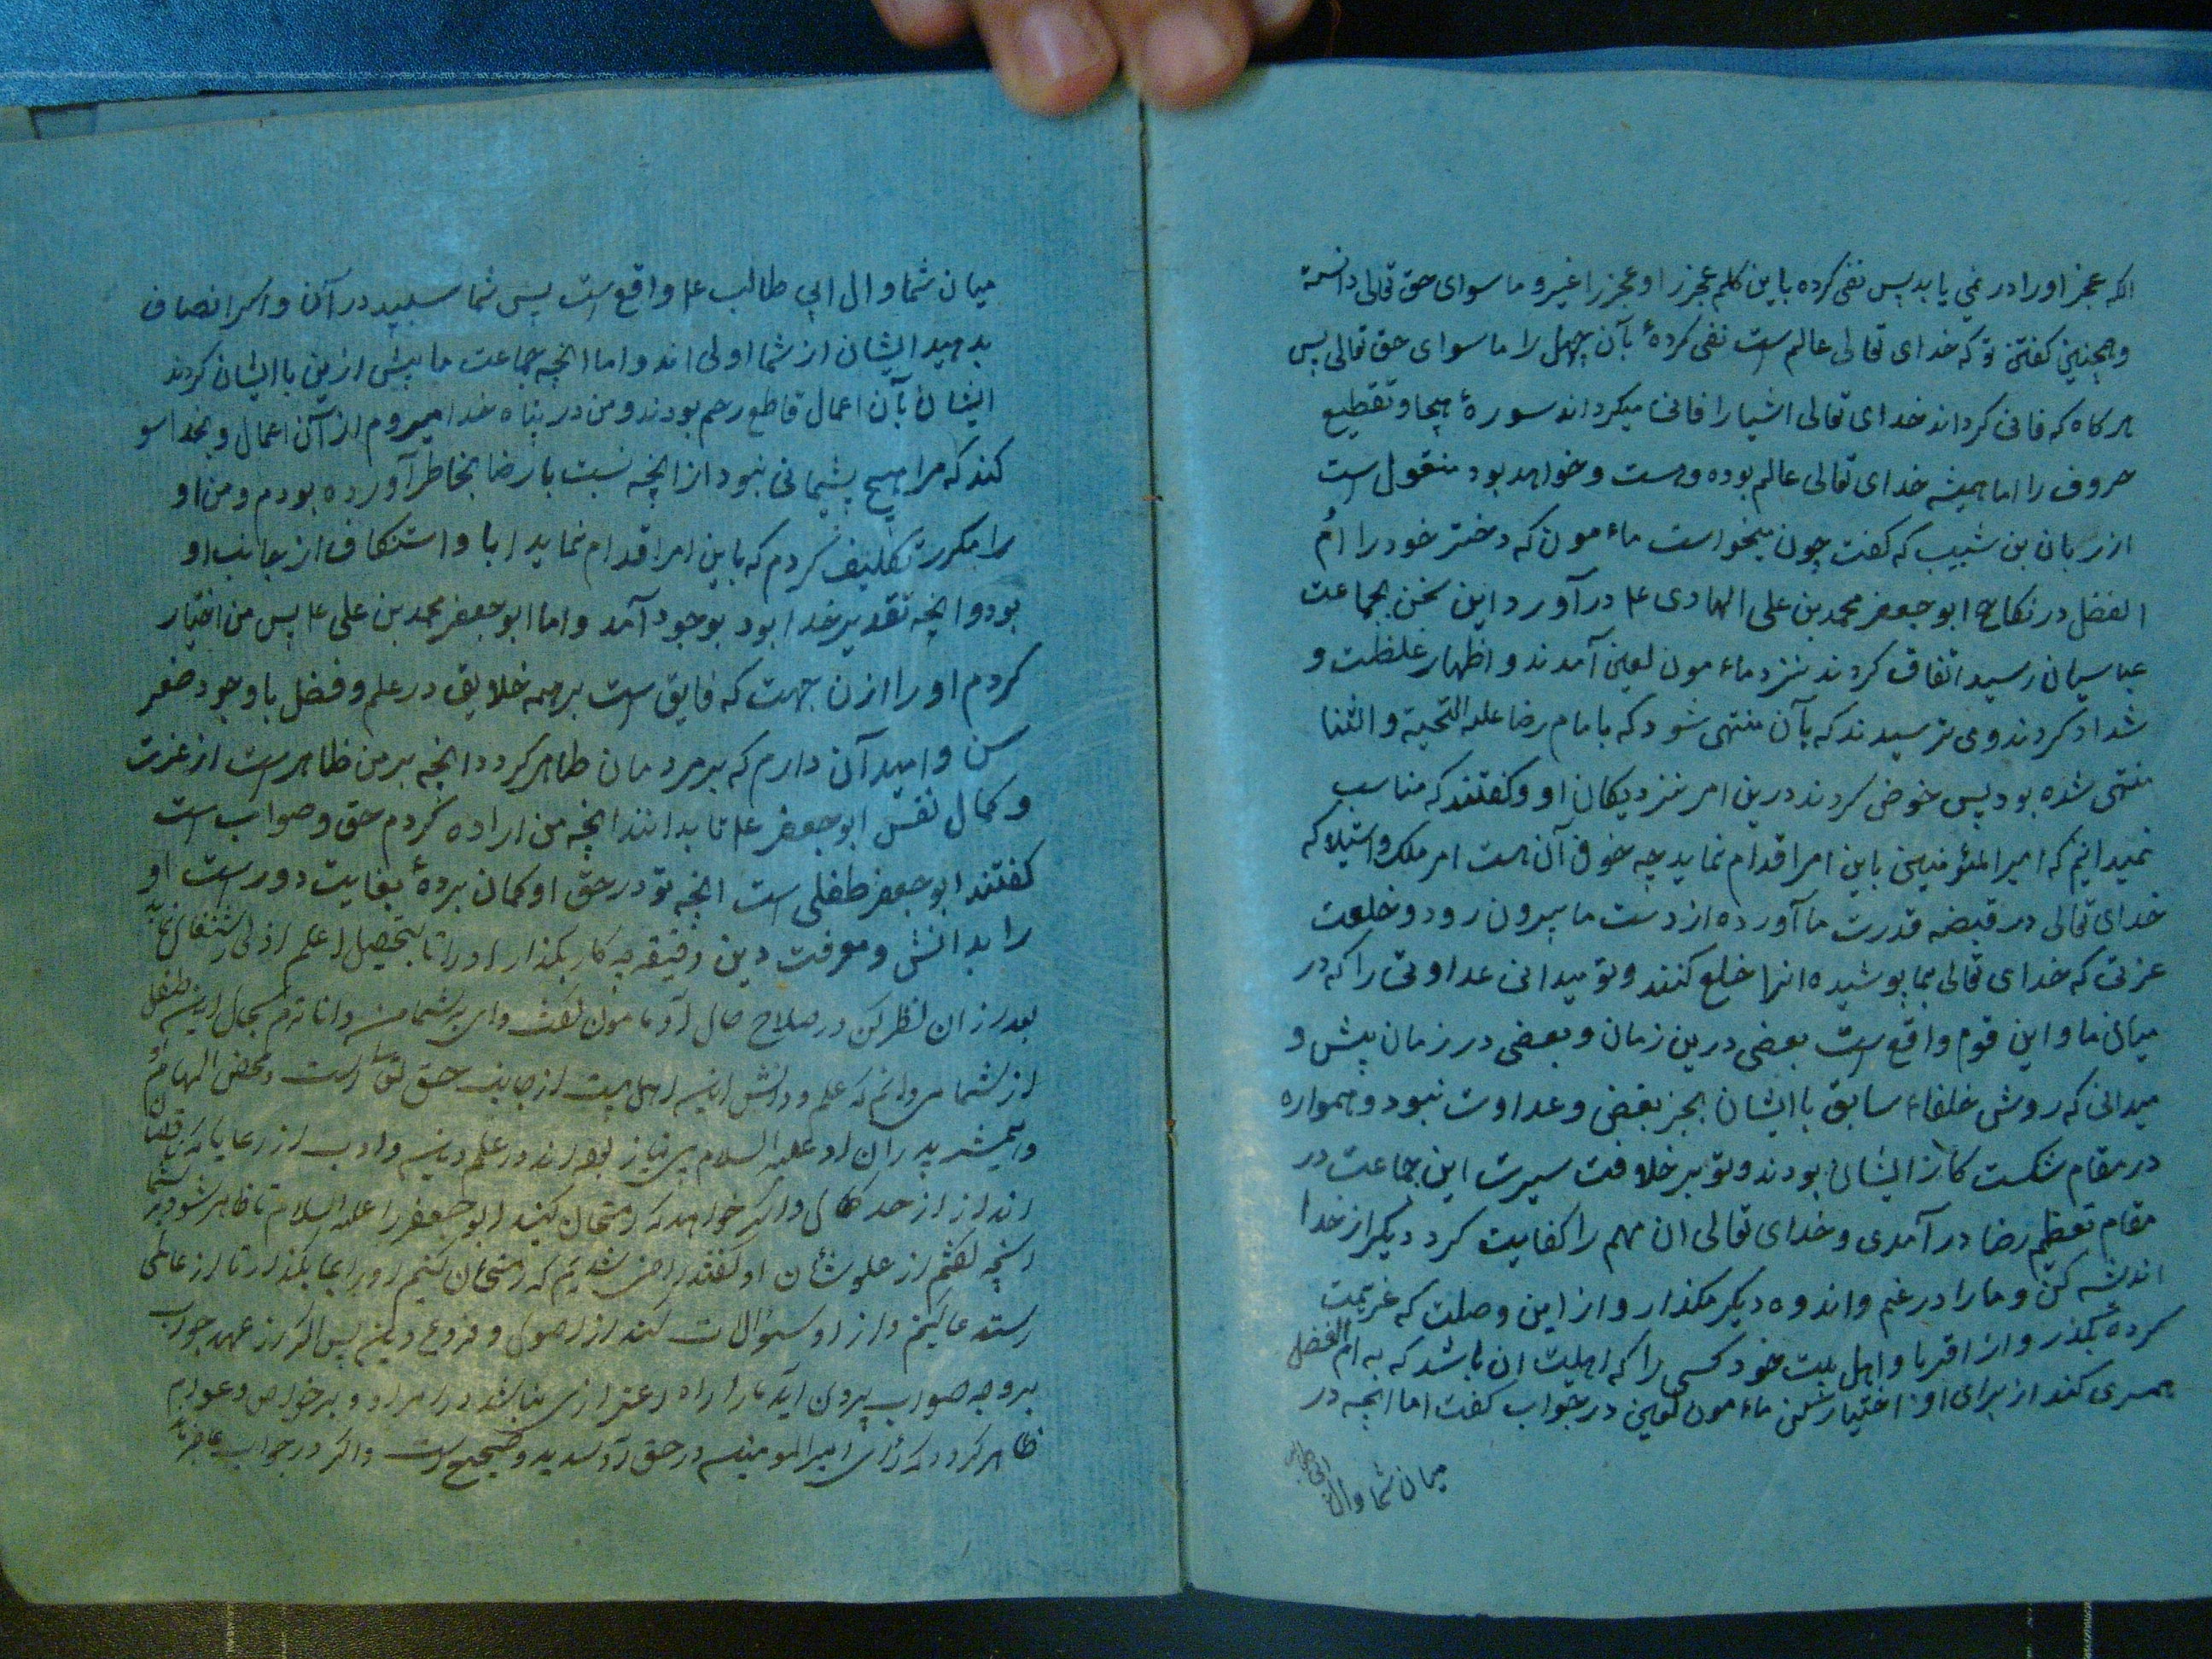 اکه عجز او را در نمی یابد پس نفی کرده باین کلم عجز را و عجز را غیر و ما سوای حق تعالی دانسته
و همچنین کفتن تو که خدای تعالی عالم است نفی کردهٔ بآن جهل را ما سوای حق تعالی پس
هر کاه که فانی کرداند خدای تعالی اشیا را فانی میکرداند سورهٔ هیجا و تقطیع
حروف را اما همیشه خدای تعالی عالم بوده و هست و خواهد بود منقول است
از ربان بن شبیب که کفت چون میخواست ماءمون که دختر خود را اُم
الفضل در نکاح ابو جعفر محمد بن علی الهادی عا در آورد این سخن بجماعت
عباسیان رسید اتفاق کردند نزد ماءمون لعین آمدند و اظهار غلظت و
شداد کردند و می ترسیدند که بآن منتهی شود که با مام رضا علیه التحیة و الثنا
منتهی شده بود پس خوض کردند درین امر نزدیکان او و کفتند که مناسب
نمیدانیم که امیر المئومنین باین امر اقدام نماید چه خوف آن هست امر ملک و استیلا که
خدای تعالی در قبضه قدرت ما آورده از دست ما بیرون رود و خلعت
عزتی که خدای تعالی بما پوشیده انرا خلع کنند و تو میدانی عداوتی را که در
میان ما و این قوم واقع است بعضی درین زمان و بعضی در زمان پیش و
میدانی که روش خلفاء سابق با ایشان بجز بغض و عداوت نبود و همواره
در مقام شکست کار ایشان بودند و تو بر خلافت سیرت این جماعت در
مقام تعظیم رضا در آمدی و خدای تعالی ان مهم را کفایت کرد دیکر از خدا
اندیشه کن و ما را در غم و اندوه دیکر مکذار و از این وصلت که عزیمت
کرده بکذر و از اقربا و اهل بیت خود کسی را که اهلیت ان باشد که به ام الفضل
همسری کند از برای او اختیار کن ماءمون لعین در جواب کفت اما انچه در
میان شما و ال ابی طالب
میان شما و ال ابی طالب عا واقع است پس شما سببید در آن و اکر انصاف
بدهید ایشان از شما اولی اند و اما انچه جماعت ما پیش ازین با ایشان کردند
ایشان بآن اعمال قاطع رحم بودند و من در پناه خدا میروم از آن اعمال و بخدا سو
کند که مرا هیچ پشیمانی نبود از انچه نسبت با رضا بخاطر آورده بودم و من او
را مکرر تکلیف کردم که باین امر اقدام نماید ابا و استنکاف از جانب او
بود و انچه تقدیر خدا بود بوجود آمد و اما ابو جعفر محمد بن علی عا پس من اختیار
کردم او را ازن جهت که فایق است بر همه خلایق در علم و فضل با وجود صغر
سن و امید آن دارم که بر مردمان ظاهر کردد انچه بر من ظاهر است از عزت
و کمال نفس ابو جعفر عا تا بدانند انچه من اراده کردم حق و صواب است
کفتند ابو جعفر طفلی است انچه تو در حق او کمان بردهٔ بغایت دور است او
را بدانش و معرفت دین دقیقه چه کار بکذار او را تا بتحصیل علم اشتغال نماید
بعد از ان نظر کن در صلاح حال او مامون کفت وای بر شما من داناترم بحال این طفل
از شما میدانم که علم و دانش این اهل بیت از جانب حق تعالی است و محض الهام او
و همیشه پدران او علیه السلام بی نیاز بودند در علم دین و ادب از رعایا که ناقصان
اند از حد کمال و اکر خواهید که امتحان کنید ابو جعفر را علیه السلام تا ظاهر شود بر شما
انچه کفتم از علو شأن او کفتند راضی شدیم که امتحان کنیم او را بما بکذار تا از عالمی
استدعا کنیم و از او سئوالات کند از اصول و فروع دین پس اکر از عهده جواب
بر وجه صواب بیرون اید ما را راه اعتراضی نباشد در امر او و بر خواص و عوام
ظاهر کردد که رأی امیر المومنین در حق او سدید و صحیح است و اکر در جواب عاجز ماند